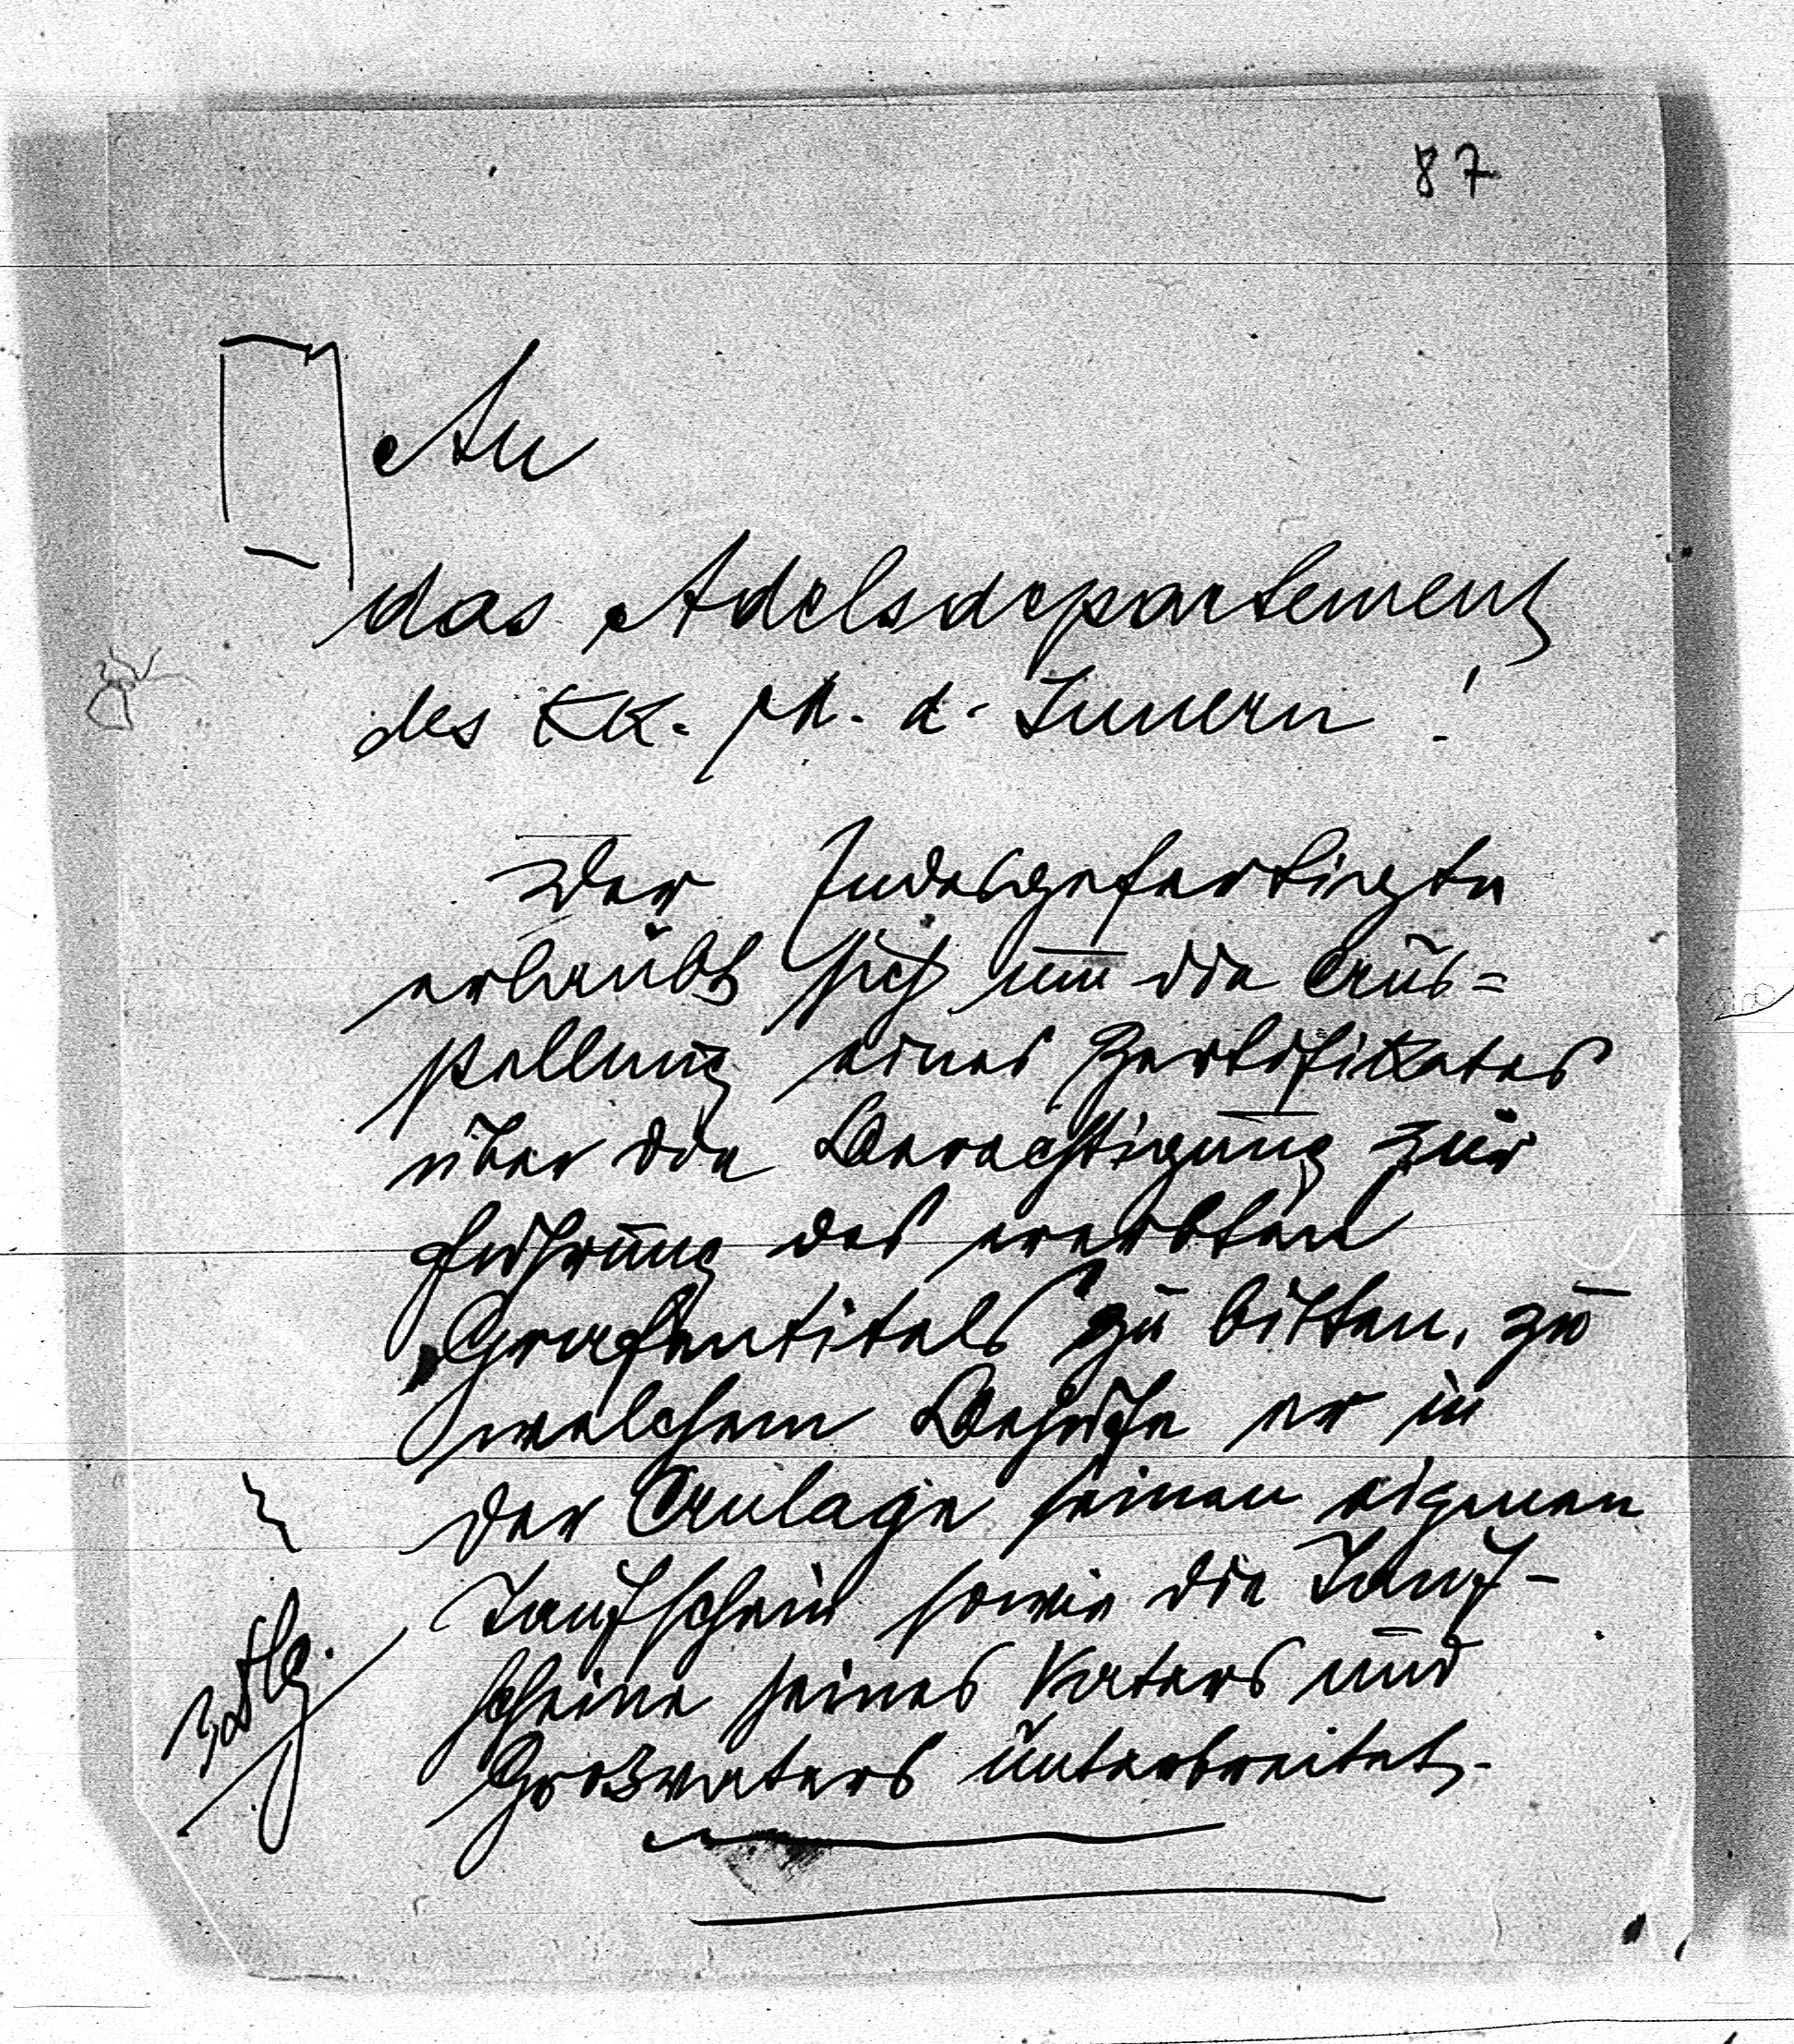 87
An
das Adelsdepartement
des KK. M. d. Innern!
Der Endesgefertigte
erlaubt sich um die Aus=
stellung eines Zertifikates
über die Berechtigung zur
Führung des ererbten
Grafentitels zu bitten, zu
welchem Behufe er in
der Anlage seinen eigenen
Taufschein sowie die Tauf-
scheine seines Vaters und
Großvaters unterbreitet.